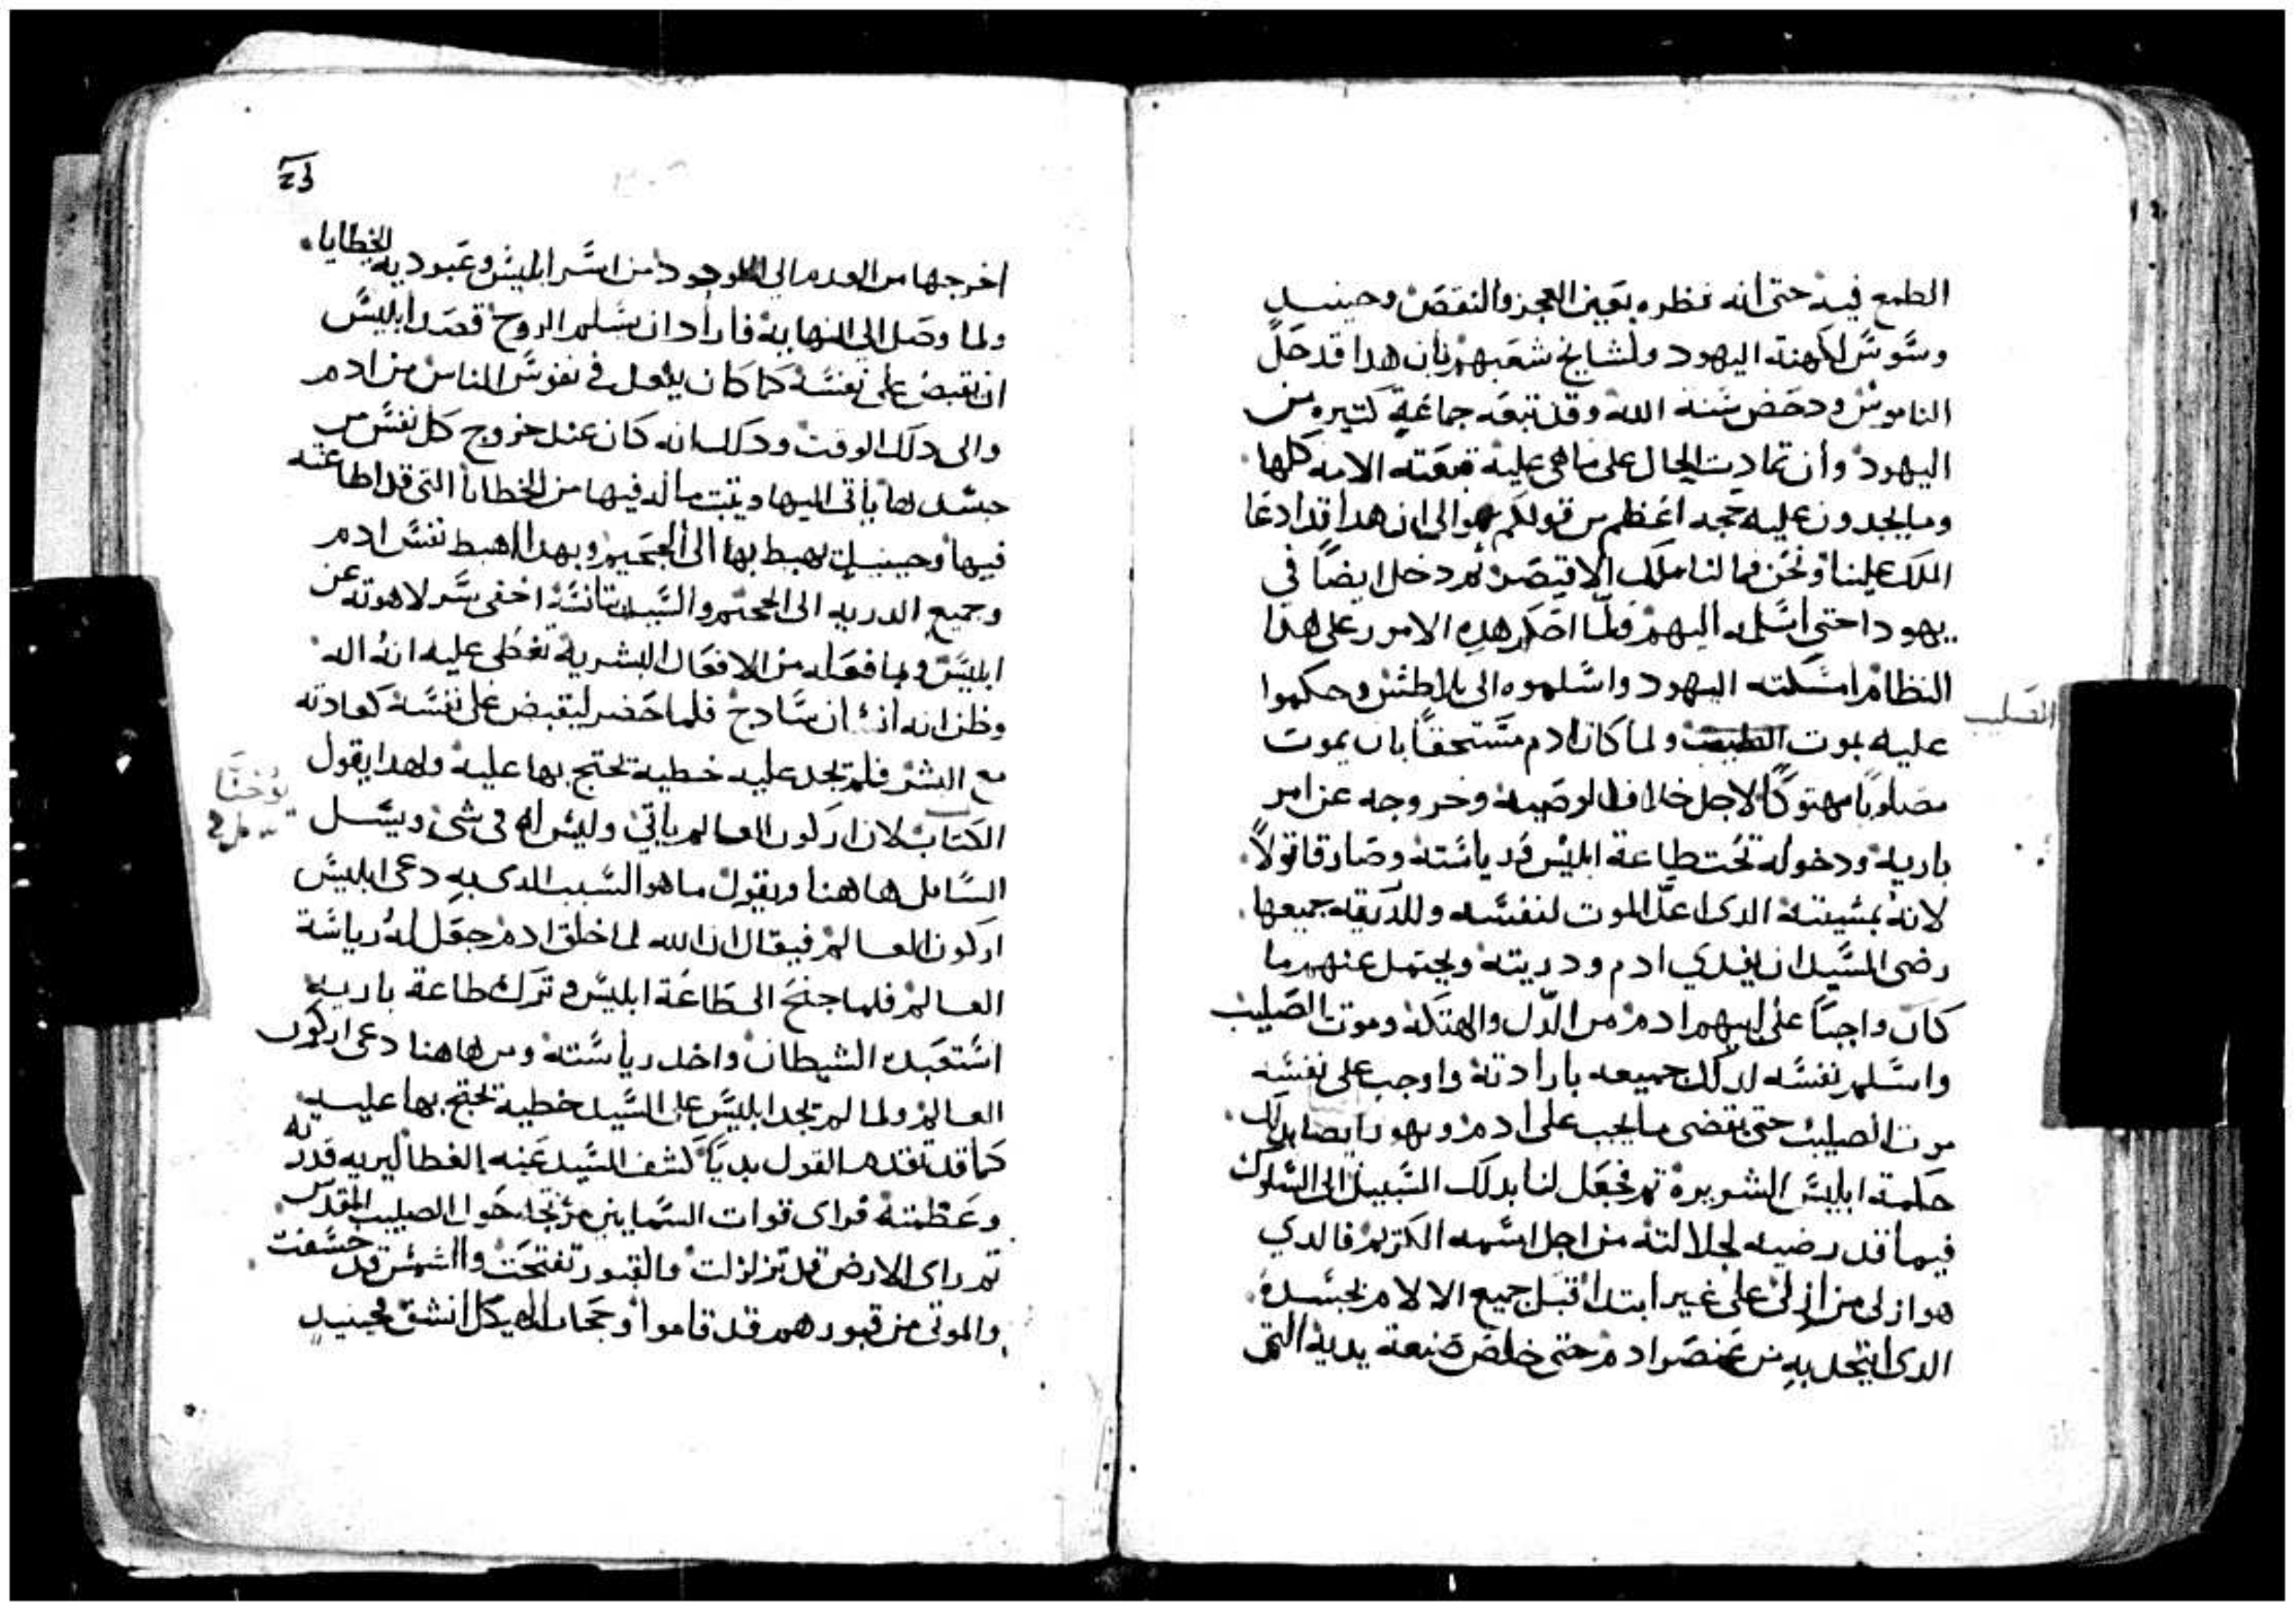 الطمع فيه حتى انه نظره بعين العجز والنقص وحينيد
وسوس لكهنة اليهود ولمشايخ شعبهم بان هدا قد حل
الناموس ودحض سنة الله وقد تبعه جماعة كتيره من
اليهود وان تمادت الحال على ما هى عليه تبعته الامه كلها
وما يجدون عليه حجه اعظم من قولكم ان هدا قد ادعا
الملك علينا ونحن فما لنا ملك الا قيصر تم دخل ايضًا في
يهودا حتى اسلمه اليهم فلما احكم هده الامور على هدا
النظام امسكته اليهود واسلموه الى بلاطس وحكموا
عليه بموت الصليب ولما كان ادم مستحقًا بان يموت
الصليب
مصلوبًا مهتوكًا لاجل خلافه الوصيه وخروجه عن امر
باريه ودخوله تحت طاعة ابليس ورياسته وصار قاتولاً
لانه بمشيته الدى اعد الموت لنفسه وللدريه جميعها
رضى السيد ان يفدي ادم ودريته ويحتمل عنهم ما
كان واجبًا على ابيهم ادم من الدل والهتكه وموت الصليب
واسلم نفسه لدلك جميعه بارادته واوجب على نفسه
موت الصليب حتى يقضى ما يجب على ادم ويهور ايضا بدلك
حكمة ابليس الشريره تم نجعل لنا بدلك السبيل الى السلوك
فيما قد رضيه لجلالته من اجل اسمه الكريم فالدي
هو ازلى من ازلى على غير ابتدا قبل جميع الالام بجسده
الدى اتحد به من عنصر ادم حتى خلص صنعة يديه التى
23
اخرجها من العدم الى الوجود من اسر ابليس وعبودية الخطايا
ولما وصل الى النهايه فاراد ان يسلم الروح قصد ابليس
ان يقبض على نفسه كما كان يفعل في نفوس الناس من ادم
والى دلك الوقت ودلك انه كان عند خروج كل نفس من
جسدها ياتى اليها ويتبت ما له فيها من الخطايا التى قد اطاعته
فيها وحينيد يهبط بها الى الجحيم وبهدا اهبط نفس ادم
وجميع الدريه الى الجحيم والسيد بتانسه اخفى سر لاهوته عن
ابليس وبما فعله من الافعال البشرية تغطى عليه انه اله
وظن انه انسان سادج فلما حضر ليقبض على نفسه كعادته
مع البشر فلم يجد عليه خطية يحتج بها عليه ولهدا يقول
يوحنا
الكتاب لان اركون العالم ياتي وليس له فى شى ويسل
السايل هاهنا ويقول ما هو السبب الدى به دعى ابليس
اركون العالم فيقال ان الله لما خلق ادم جعل له رياسة
العالم فلما جنح الى طاعة ابليس وترك طاعة باريه
استعبده الشيطان واخد رياسته ومن هاهنا دعى اركون
العالم ولما لم يجد ابليس على السيد خطية يحتج بها عليه
كما قد تقدم القول بديًا كشف السيد عنه الغطا ليريه قدرته
وعظمته فراى قوات السماييين مرتجه حول الصليب المقدس
تم راى الارض قد تزلزلت والقبور تفتحت والشمس قد خسفت
والموتى من قبورهم قد قاموا وحجاب الهيكل انشق فحينيد